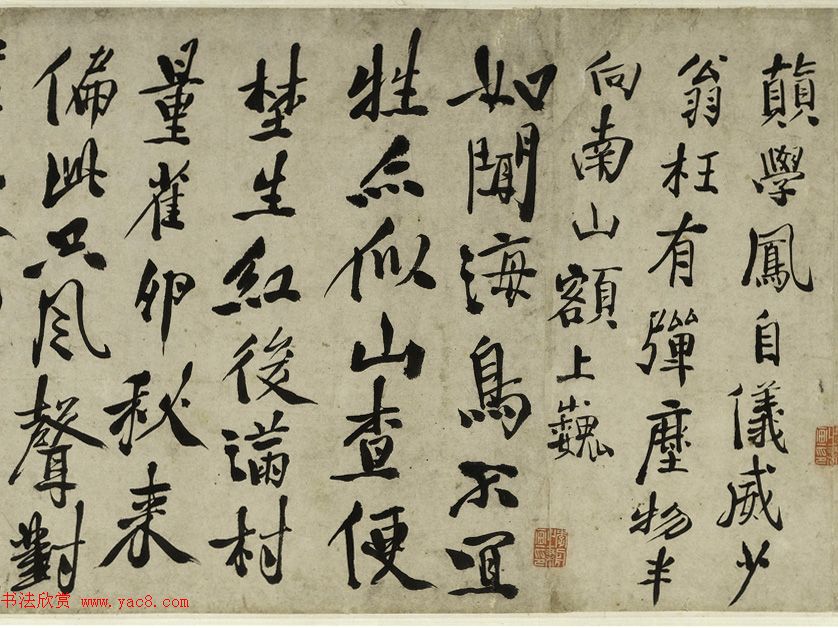 顛學鳳自儀威少
翁枉有彈塵物半
向南山額上巍
如聞海鳥不宜
牲亦似山查便
埜生紅後滿村
量雀卵秋来
偏此只風聲對
书法欣赏 www.yac8.com